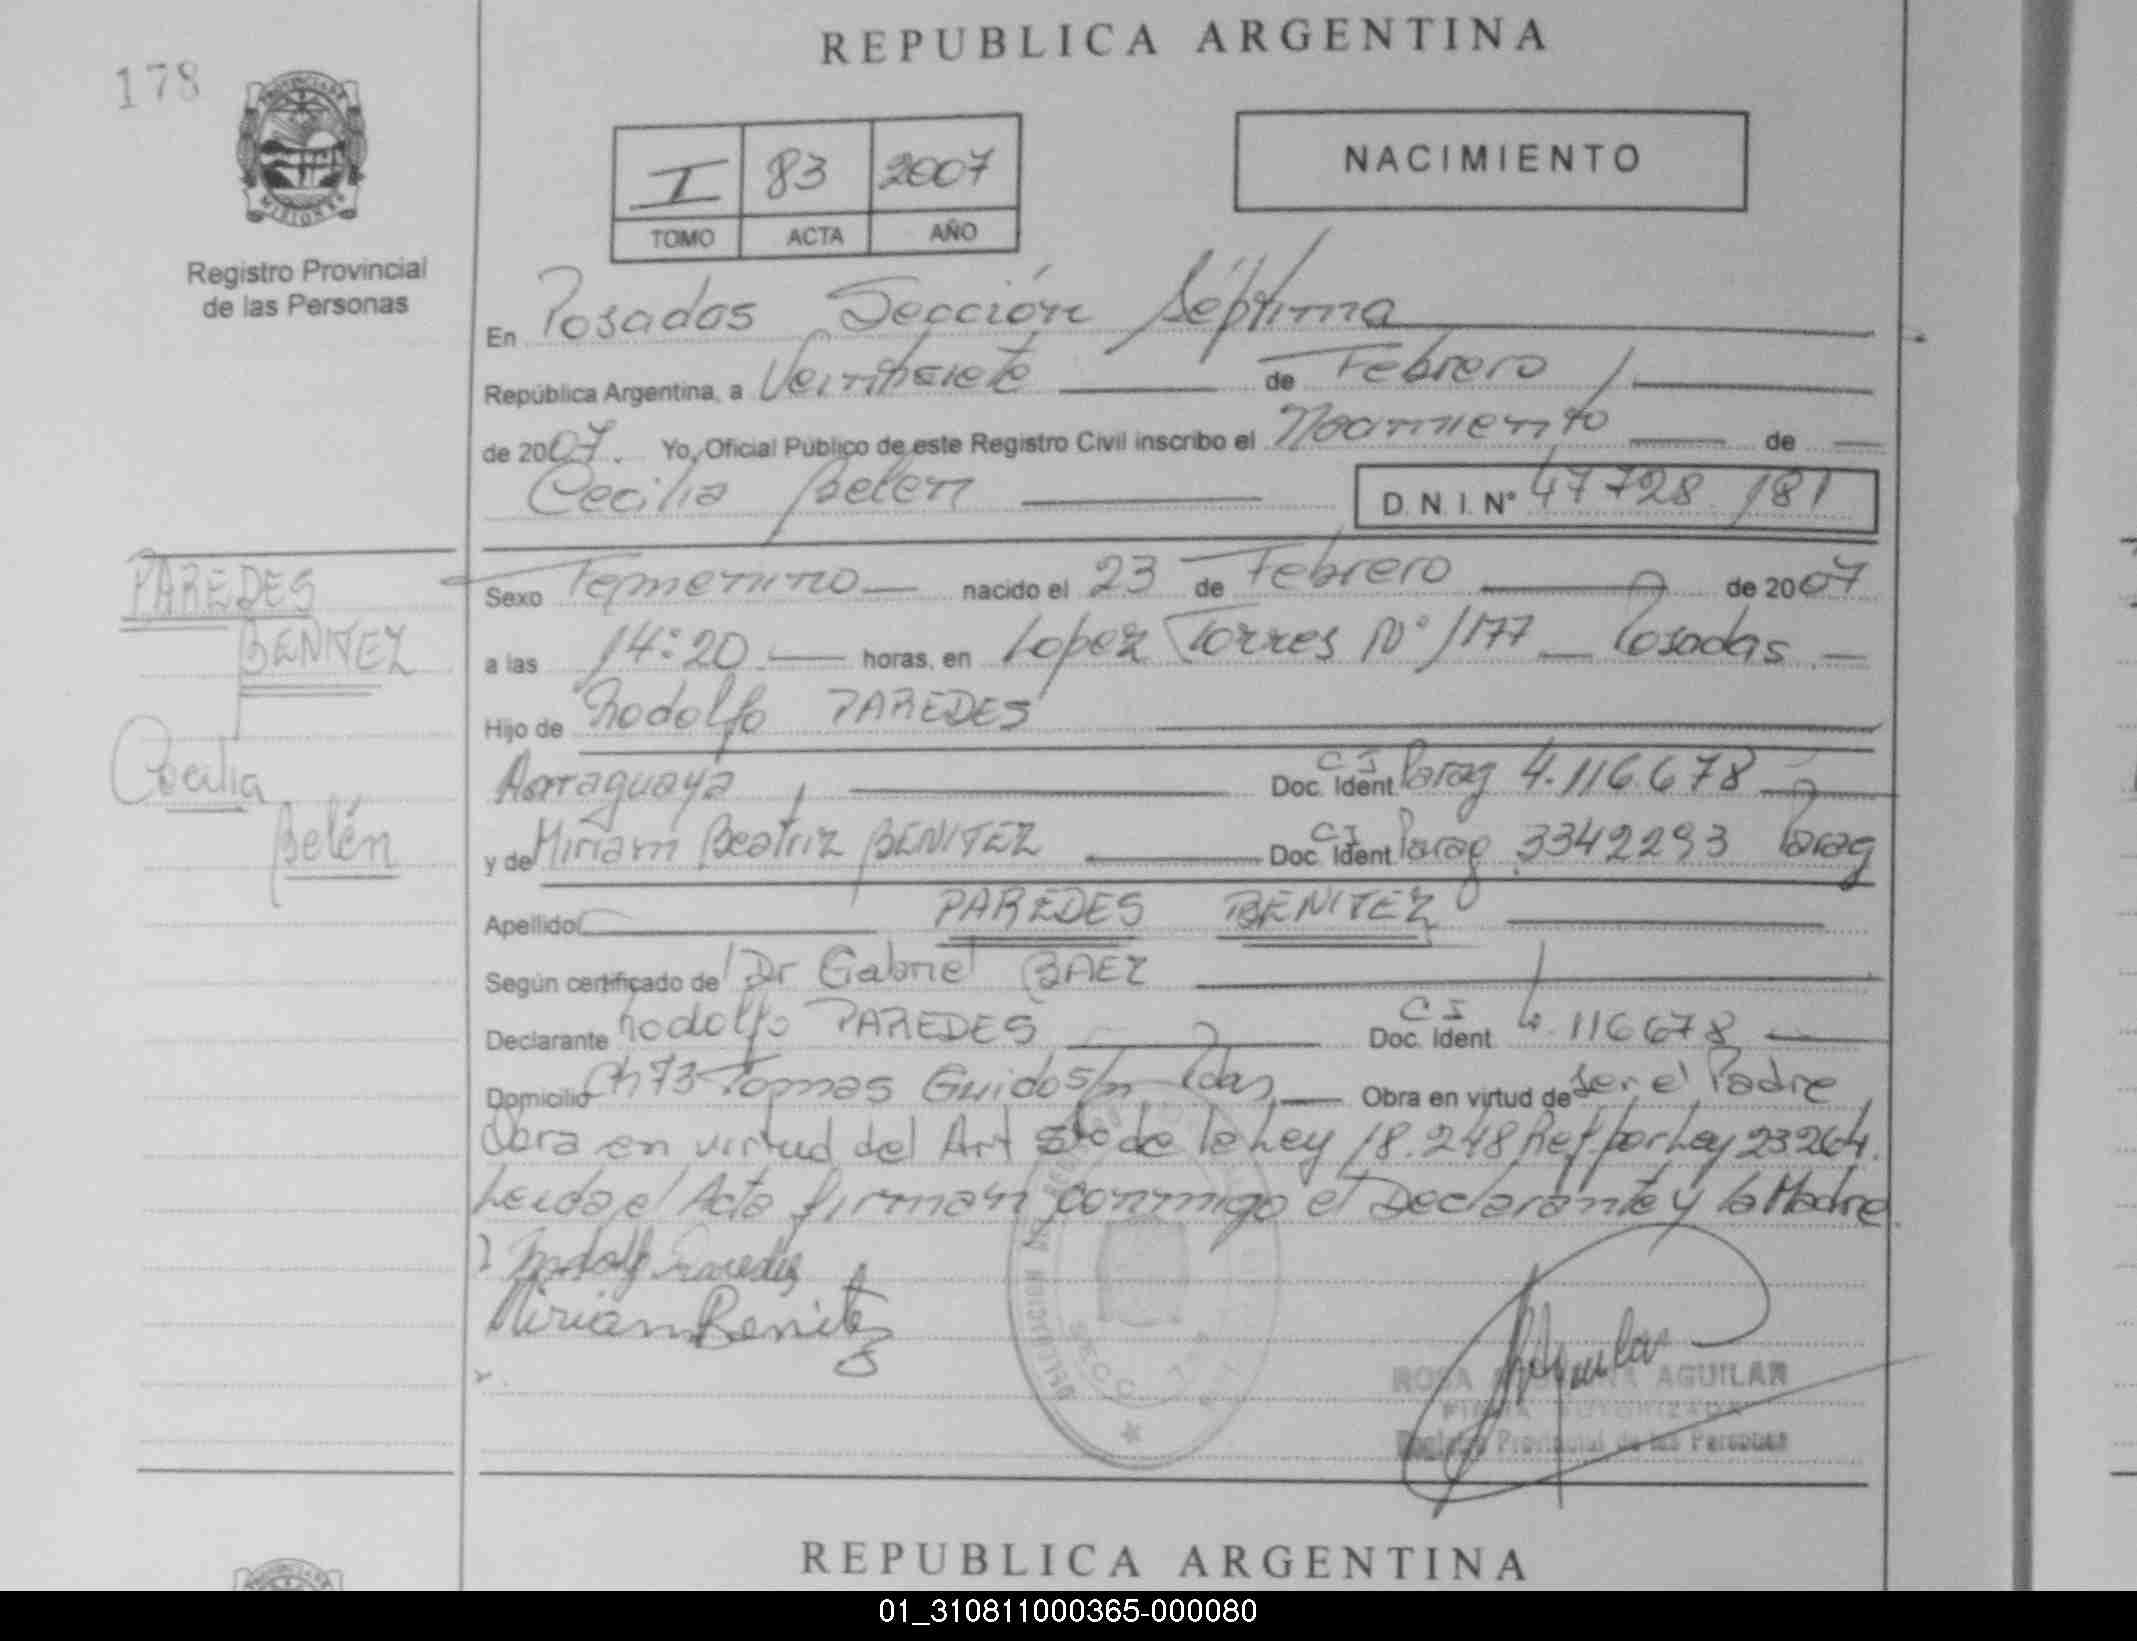 178
REPUBLICA ARGENTINA
PROVINCIA DE MISIONES
Registro Provincial
de las Personas
I 83 2007
TOMO ACTA AÑO
NACIMIENTO
En Posadas Sección Séptima
República Argentina, a Veintisiete de Febrero
de 2007. Yo, Oficial Público de este Registro Civil inscribo el Nacimiento de
Cecilia Belén D.N.I. Nº 47728 181
PAREDES
BENITEZ
Cecilia
Belén
Sexo Femenino nacido el 23 de Febrero de 2007
a las 14:20 horas, en Lopez Torres Nº 1177 Posadas
Hijo de Rodolfo PAREDES
Doc. Ident CI Parag 4.116.678
y de Miriam Beatriz BENITEZ Doc. Ident CI Parag 3342293 Parag
Apellido PAREDES BENITEZ
Según certificado de Dr Gabriel BAEZ
Declarante Rodolfo PAREDES Doc. Ident CI 4.116678
Domicilio Ch 73 Tomas Guido s/n Pdas Obra en virtud de ser el Padre
Obra en virtud del Art 5to de la Ley 18.248 Ref por Ley 23264.
Leida el Acta firman conmigo el Declarante y la Madre.
Rodolf Paredes
Mirian Benitez
AGUILAR
FIRMA AUTORIZADA
Registro Provincial de las Personas
REPUBLICA ARGENTINA
01_310811000365-000080